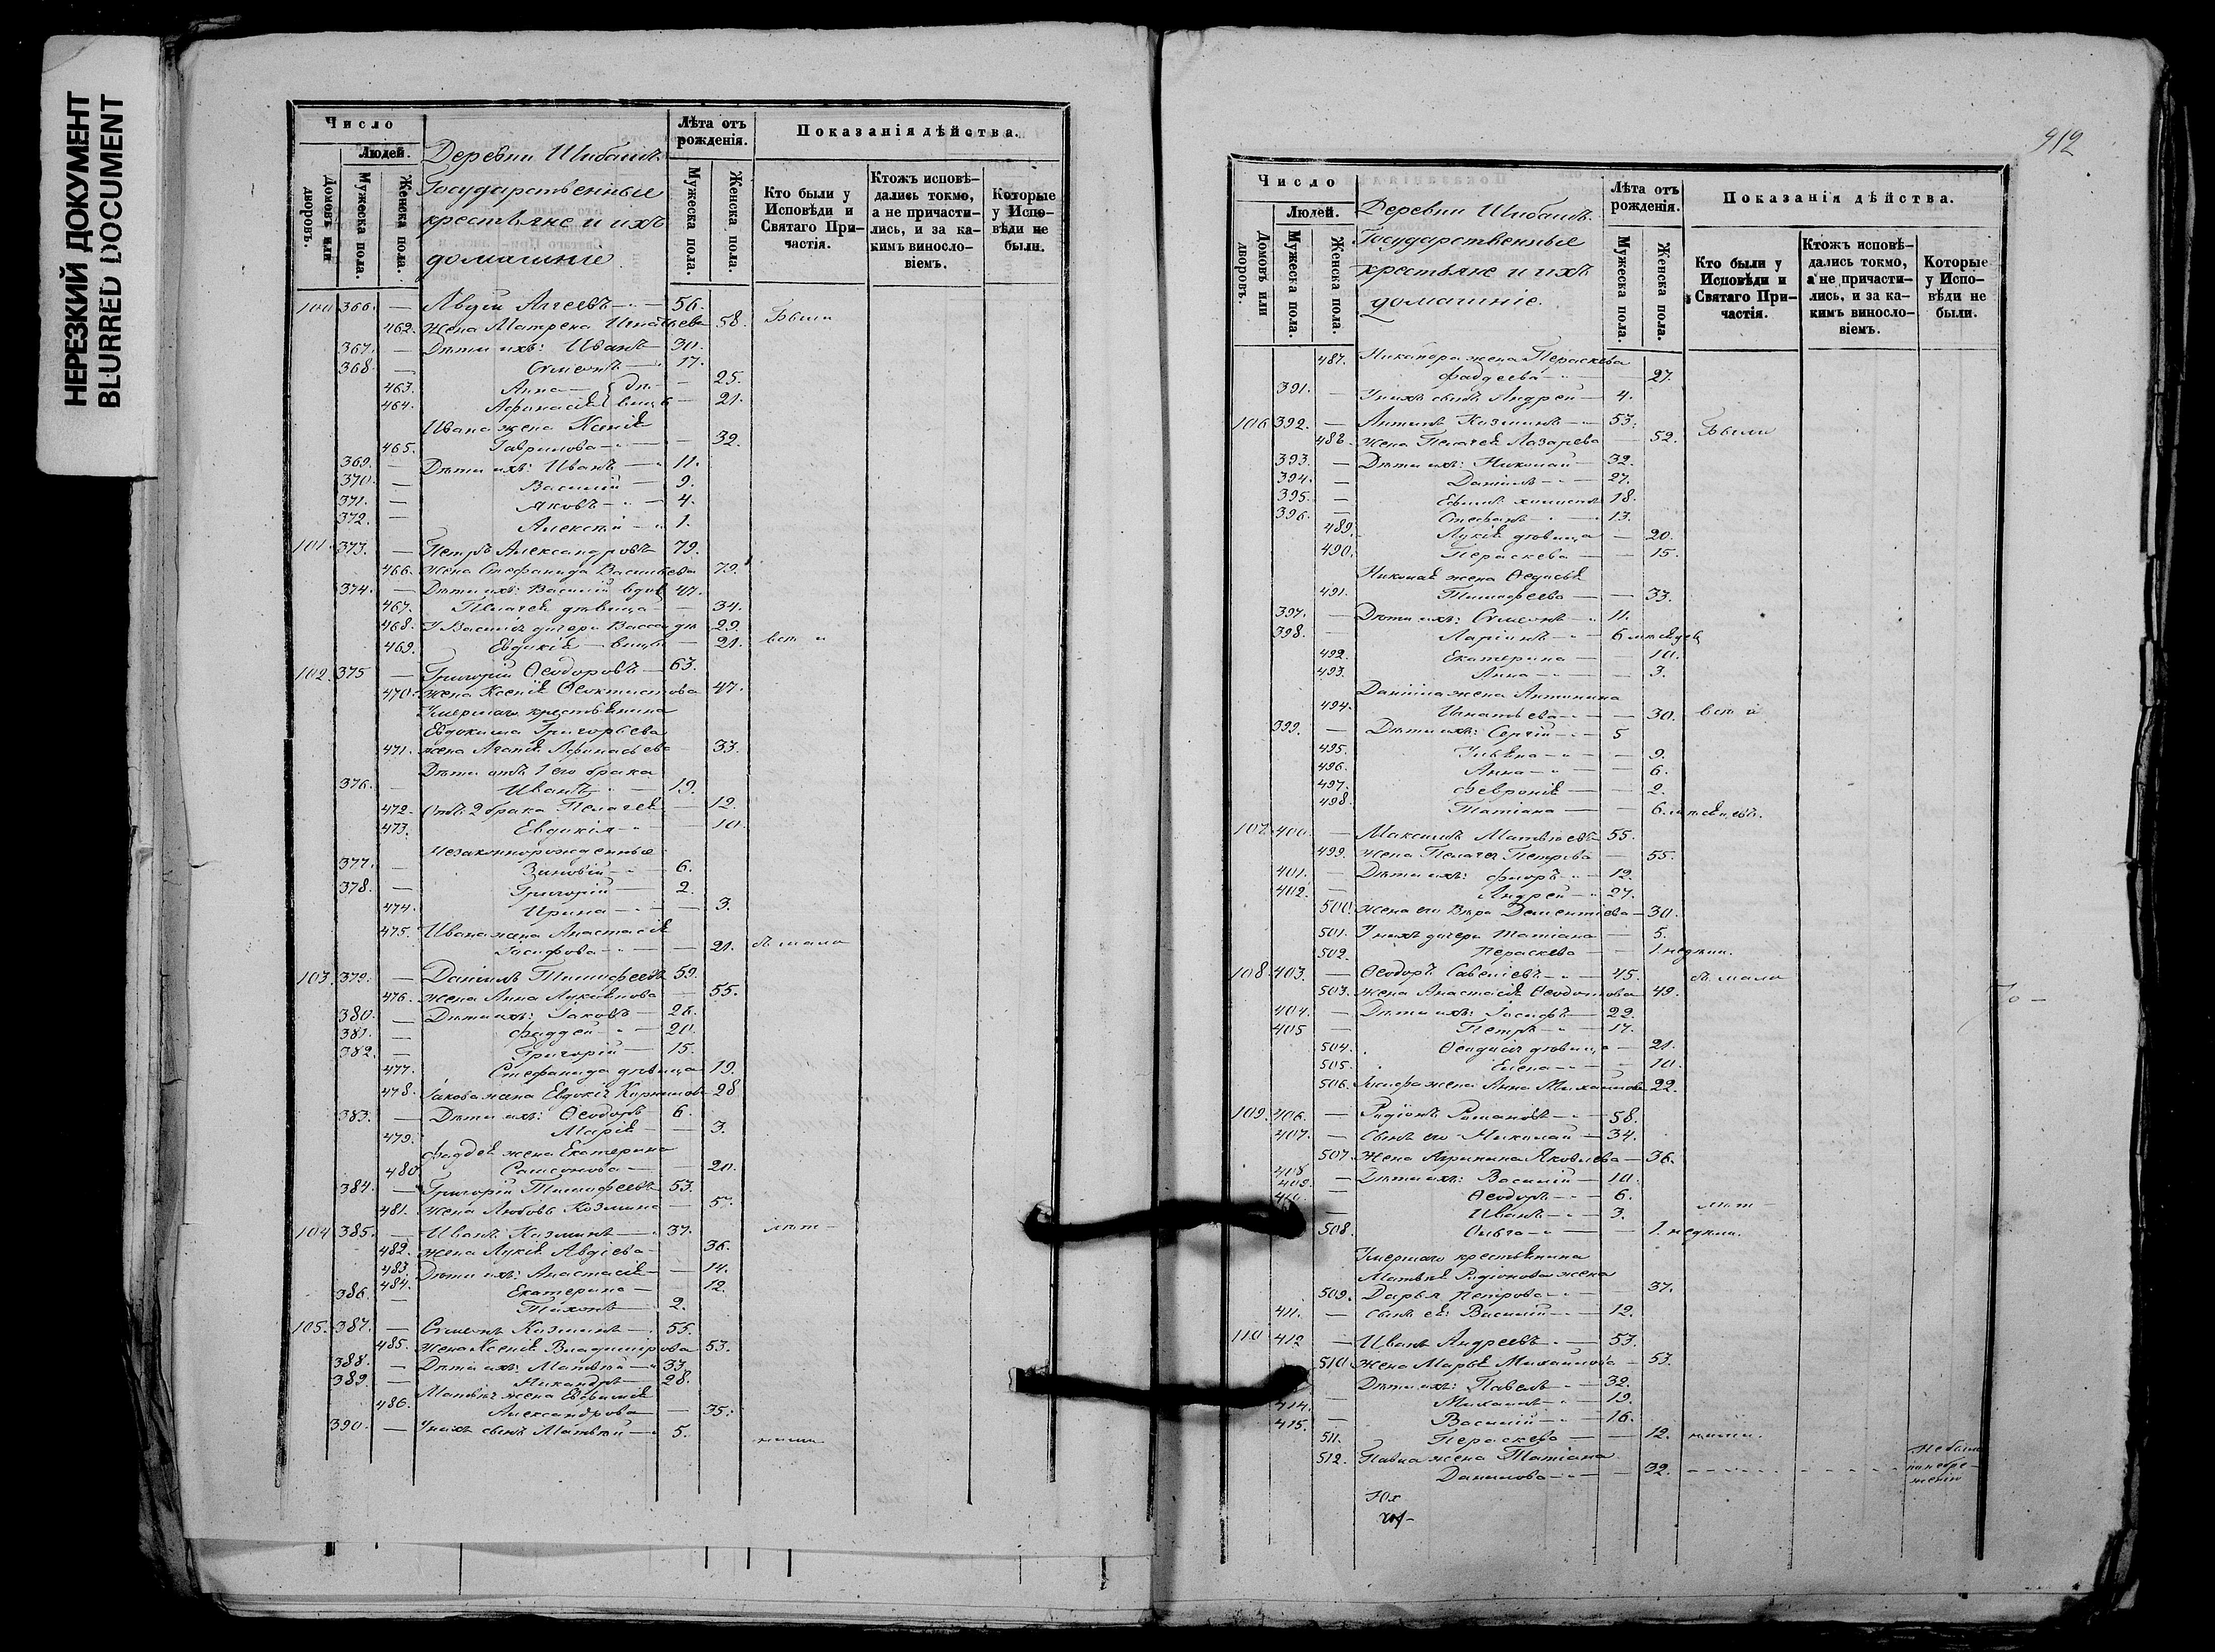 НЕРЕЗКИЙ ДОКУМЕНТ
BLURRED DOCUMENT
Число
Людей.
Домовъ или дворовъ.
Мужеска пола.
Женска пола.
Деревни
Государственные
крестьяне и ихъ
домашніе
Лѣта отъ рожденія.
Мужеска пола.
Женска пола.
Показанія дѣйства.
Кто были у Исповѣди и Святаго Причастія.
Ктожъ исповѣдались токмо, а не причастились, и за какимъ винословіемъ.
Которые у Исповѣди не были.
100 366. — Авдій 56.
462. Жена Матрена Игнатьева 58. Были
367. — Дѣти ихъ: Иванъ — 30.
368. — Симеонъ — 17.
463. Анна — — 25.
464. Афанасія — 21.
Ивана жена Ксенія
465. Гаврилова — — 32.
369. — Дѣти ихъ: Иванъ — 11.
370. — Василій — 9.
371. — Яковъ — 4.
372. — Алексій — 1.
101. 373. — Петръ Александровъ 79.
466. Жена Стефанида Васильева 79.
374. — Дѣти ихъ: Василій вдов 47.
467. Пелагея дѣвица — 34.
468. У Василія дочери Васса 29.
469. Евдокія — 21.
102. 375 — Григорій Ѳеодоровъ — 63.
470. Жена Ксенія Ѳеоктистова 47.
Умершаго крестьянина
Евдокима Григорьева
471. жена Агапія Афанасьева 33.
Дѣти отъ 1 его брака
376. — Иванъ — 19.
472. Отъ 2 брака Пелагея — 12.
473. Евдокія — 10.
Незаконнорожденные
377. — Зиновій — 6.
378. — Григорій — 2.
474. Ирина — 3.
475. Ивана жена Анастасія
Іосифова — 21.
103. 379. — Даніилъ Тимофеевъ 59.
476. Жена Анна Лукіянова — 55.
380. — Дѣти ихъ: Іаковъ — 28.
381. — Фаддей — 20.
382. — Григорій — 15.
477. Стефанида дѣвица 19.
478. Іакова жена Евдокія 28
383. — Дѣти ихъ: Ѳеодоръ 6.
479. Марія — 3.
Фаддея жена Екатерина
480. Самсонова — 20.
384. — Григорій Тимофеевъ 53.
481. Жена Любовь Козмина — 57.
104 385. — Иванъ Козминъ — 37.
482. Жена Лукія Авдіева — 36.
483. Дѣти ихъ: Анастасія — 14.
484. Екатерина — 12.
386. — Тихонъ — 2.
105. 387. — Симеонъ Козминъ — 55.
485. Жена Ксенія Владимірова 53.
388. — Дѣти ихъ: Матвѣй — 33.
389. — Никандръ — 28.
Матвѣя жена Евфимія
486. Александрова — 35.
390. — У нихъ сынъ Матвѣй — 5.
912
Число
Людей.
Домовъ или дворовъ.
Мужеска пола.
Женска пола.
Деревни
Государственные
крестьяне и ихъ
домашніе.
Лѣта отъ рожденія.
Мужеска пола.
Женска пола.
Показанія дѣйства.
Кто были у Исповѣди и Святаго Причастія.
Ктожъ исповѣдались токмо, а не причастились, и за какимъ винословіемъ.
Которые у Исповѣди не были.
487. жена Параскева
Фаддеева — 27.
391. — У нихъ сынъ Андрей — 4.
106 392. — Антипъ Козминъ — 53.
488. Жена Пелагея Лазарева — 52. Были
393. — Дѣти ихъ: Николай — 32.
394. — Даніилъ — 27.
395. — Ефимъ холостъ 18.
396. — Стефанъ — 13.
489. Лукія дѣвица — 20.
490. Параскева — 15.
Николая жена Ѳедосія
491. Тимофеева — 33.
397. — Дѣти ихъ: Симеонъ — 11.
398. — Ларіонъ — 6 мѣсяцев
492. Екатерина — 10.
493. Анна — 3.
Даніила жена Антонина
494. Игнатьева — 30.
399. — Дѣти ихъ: Сергій — 5
495. Ульяна — 9.
496. Анна — 6.
497. Февронія — 2.
498. Татіана — 6 мѣсяцевъ.
107 400. — Максимъ Матвѣевъ 55.
499. Жена Пелагея Петрова — 55.
401. — Дѣти ихъ: Флоръ — 12.
402. — Андрей — 27.
500. Жена его Вѣра Дементіева — 30.
501. У нихъ дочери Татіана — 5.
502. Параскева — 1 недѣли.
108. 403. — Ѳеодоръ Савеліевъ — 45.
503. Жена Анастасія Ѳеодотова 49.
404. — Дѣти ихъ: Іосифъ — 22.
405 — Петръ — 17.
504. Ѳеодосія дѣвица — 21.
505. Елена — 10.
506. Іосифа жена Анна Михайлова 22.
109. 406. — Родіонъ Романовъ — 58.
407. — Сынъ его Николай — 34.
507 Жена Агрипина Яковлева — 36.
408 — Дѣти ихъ: Василій — 10.
409. — Ѳеодоръ — 6.
410. — Иванъ — 3.
508. Ольга — 1. недѣли.
Умершаго крестьянина
Матвѣя Родіонова жена
509. Дарья Петрова — 37.
411. — Сынъ ея: Василій — 12.
110 412 — Иванъ Андреевъ — 53.
510 Жена Марья Михайлова — 53.
Дѣти ихъ: Павелъ — 32.
414. — Михаилъ — 19.
415. — Василій — 16.
511. Параскева — 12.
512. Павла жена Татіана
Данилова — 32. Не была
по небре-
женію